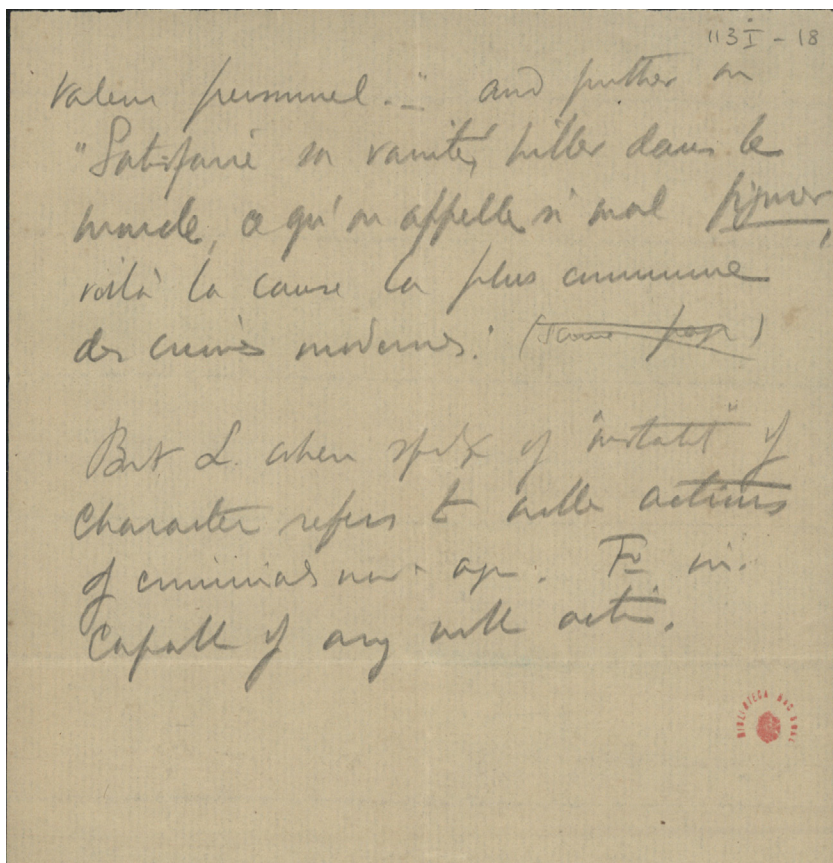 113I - 18
valeur personnel..." and further on
"Satisfaire sa vanité, briller dans le
monde, ce qu'on appelle si mal figurer,
voilà la cause la plus commune
des crimes modernes." (same page)
But L. when spkg of "instabt" of
character refers to noble actions
of criminals now &
capable of any noble acti.
BIBLIOTECA NACIONAL